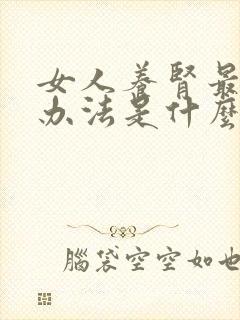 女人養腎最
办法是什麼
腦袋空空如也